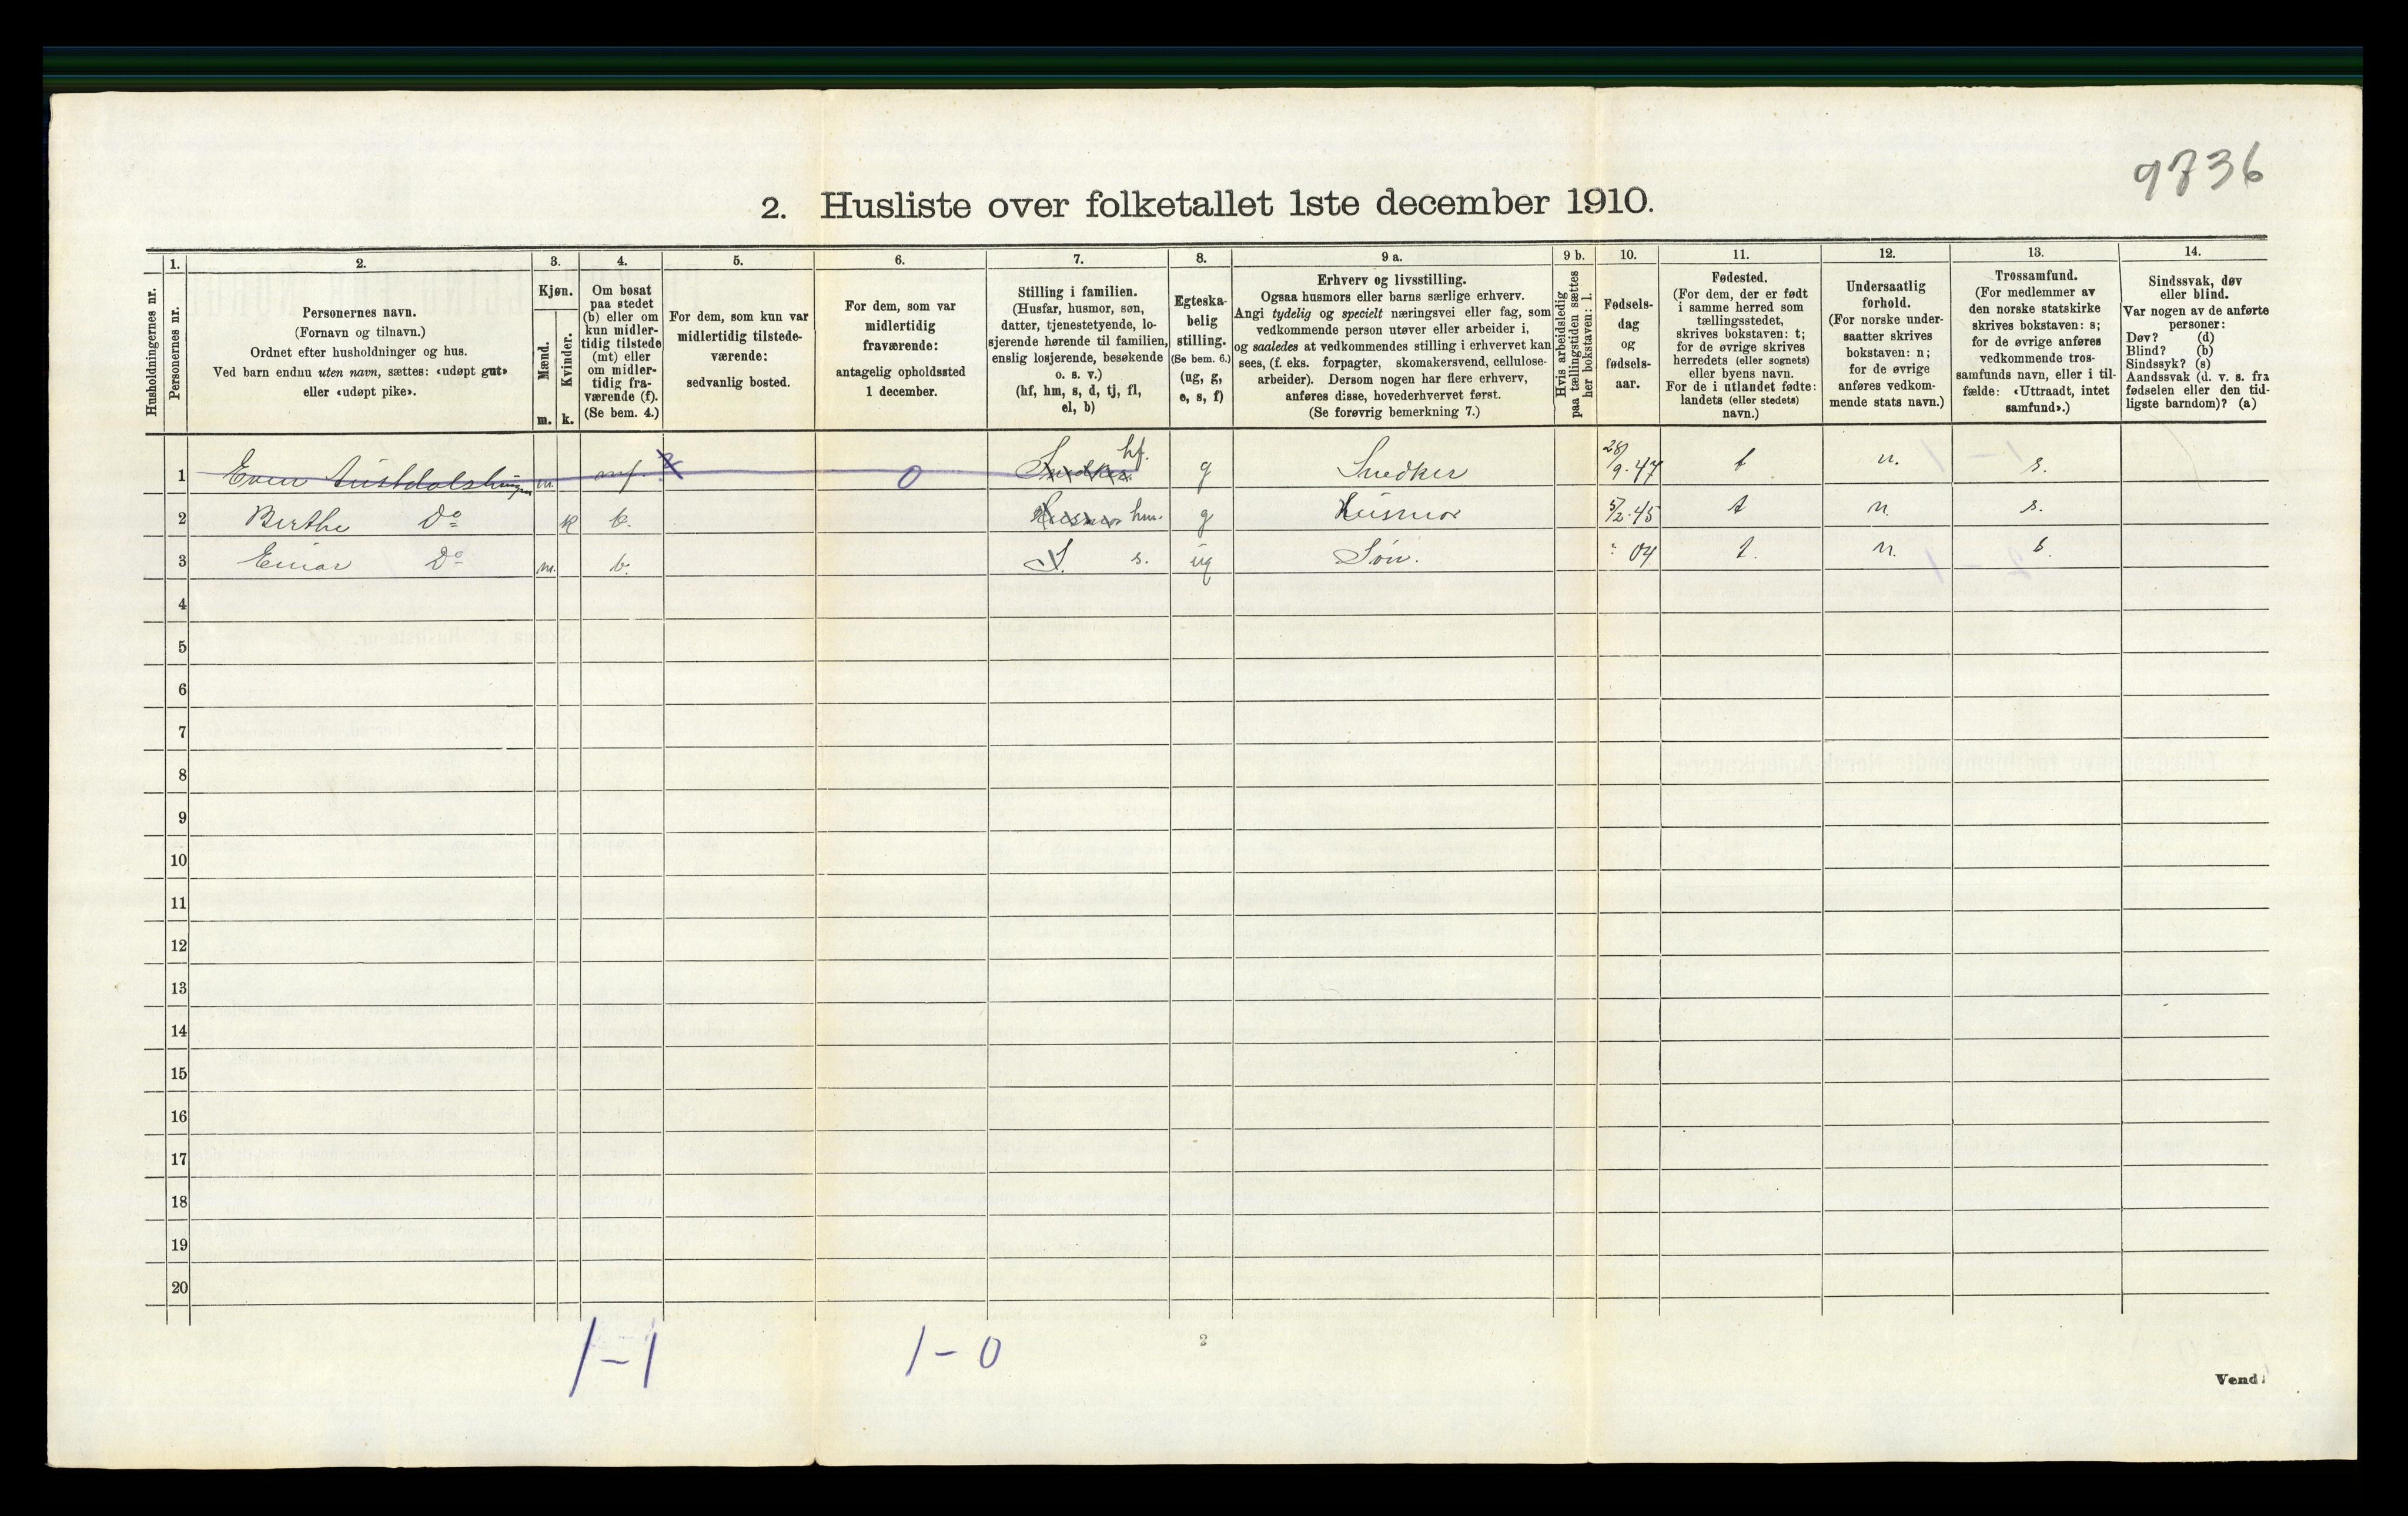 9736
2. Husliste over folketallet 1ste december 1910.
Husholdningernes nr.
1.
Personernes nr.
2.
Personernes navn.
(Fornavn og tilnavn.)
Ordnet efter husholdninger og hus.
Ved barn endnu uten navn, sættes: «udøpt gut»
eller «udøpt pike».
3.
Kjøn.
Mænd.
m.
Kvinder.
k.
4.
Om bosat
paa stedet
(b) eller om
kun midler-
tidig tilstede
(mt) eller
om midler-
tidig fra-
værende (f).
(Se bem. 4.)
5.
For dem, som kun var
midlertidig tilstede-
værende:
sedvanlig bosted.
6.
For dem, som var
midlertidig
fraværende:
antagelig opholdssted
1 december.
7.
Stilling i familien.
(Husfar, husmor, søn,
datter, tjenestetyende, lo-
sjerende hørende til familien,
enslig losjerende, besøkende
o. s. v.)
(hf, hm, s, d, tj, fl,
el, b)
8.
Egteska-
belig
stilling.
(Se bem. 6.)
(ug, g,
e, s, f)
9 a.
Erhverv og livsstilling.
Ogsaa husmors eller barns særlige erhverv.
Angi tydelig og specielt næringsvei eller fag, som
vedkommende person utøver eller arbeider i,
og saaledes at vedkommendes stilling i erhvervet kan
sees, (f. eks. forpagter, skomakersvend, cellulose-
arbeider). Dersom nogen har flere erhverv,
anføres disse, hovederhvervet først.
(Se forøvrig bemerkning 7.)
9 b.
Hvis arbeidsledig
paa tællingstiden sættes
her bokstaven: l.
10.
Fødsels-
dag
og
fødsels-
aar.
11.
Fødested.
(For dem, der er født
i samme herred som
tællingsstedet,
skrives bokstaven: t;
for de øvrige skrives
herredets (eller sognets)
eller byens navn.
For de i utlandet fødte:
landets (eller stedets)
navn.)
12.
Undersaatlig
forhold.
(For norske under-
saatter skrives
bokstaven: n;
for de øvrige
anføres vedkom-
mende stats navn.)
13.
Trossamfund.
(For medlemmer av
den norske statskirke
skrives bokstaven: s;
for de øvrige anføres
vedkommende tros-
samfunds navn, eller i til-
fælde: «Uttraadt, intet
samfund».)
14.
Sindssvak, døv
eller blind.
Var nogen av de anførte
personer:
Døv? (d)
Blind? (b)
Sindssyk? (s)
Aandssvak (d. v. s. fra
fødselen eller den tid-
ligste barndom)? (a)
1 Even m. mf. 0 Snedker hf. g Snedker 28/9.47 t n. s.
2 Berthe Do k b. Husmor hm. g Husmor 5/2.45 t n. s.
3 Einar Do m. b. S. s. ug Søn. " 04 t. n. s.
4
5
6
7
8
9
10
11
12
13
14
15
16
17
18
19
20
1-1 1-0
2
Vend!